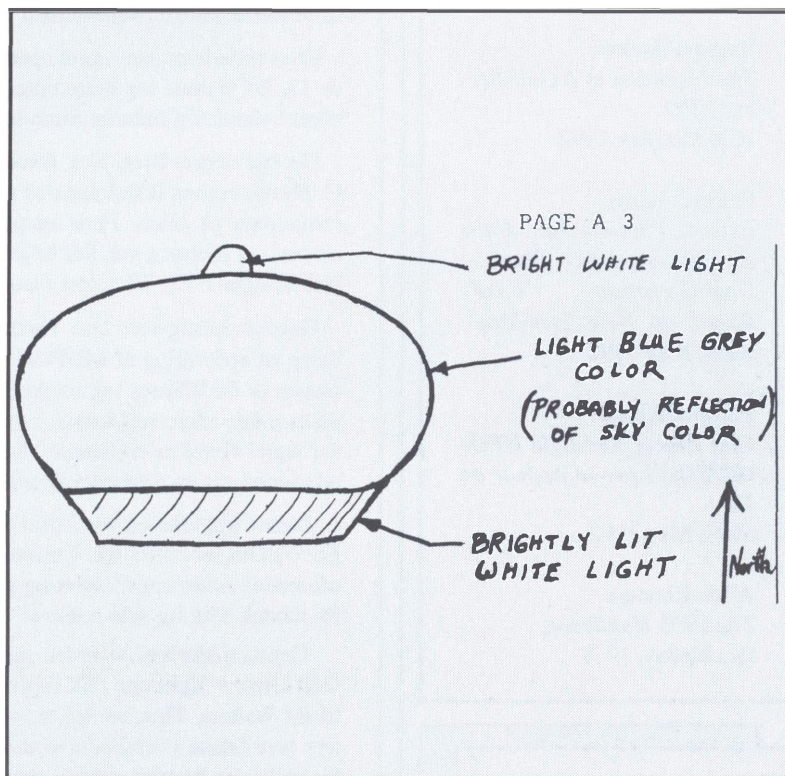 PAGE A 3
BRIGHT WHITE LIGHT
LIGHT BLUE GREY
COLOR
(PROBABLY REFLECTION
OF SKY COLOR)
BRIGHTLY LIT
WHITE LIGHT
North